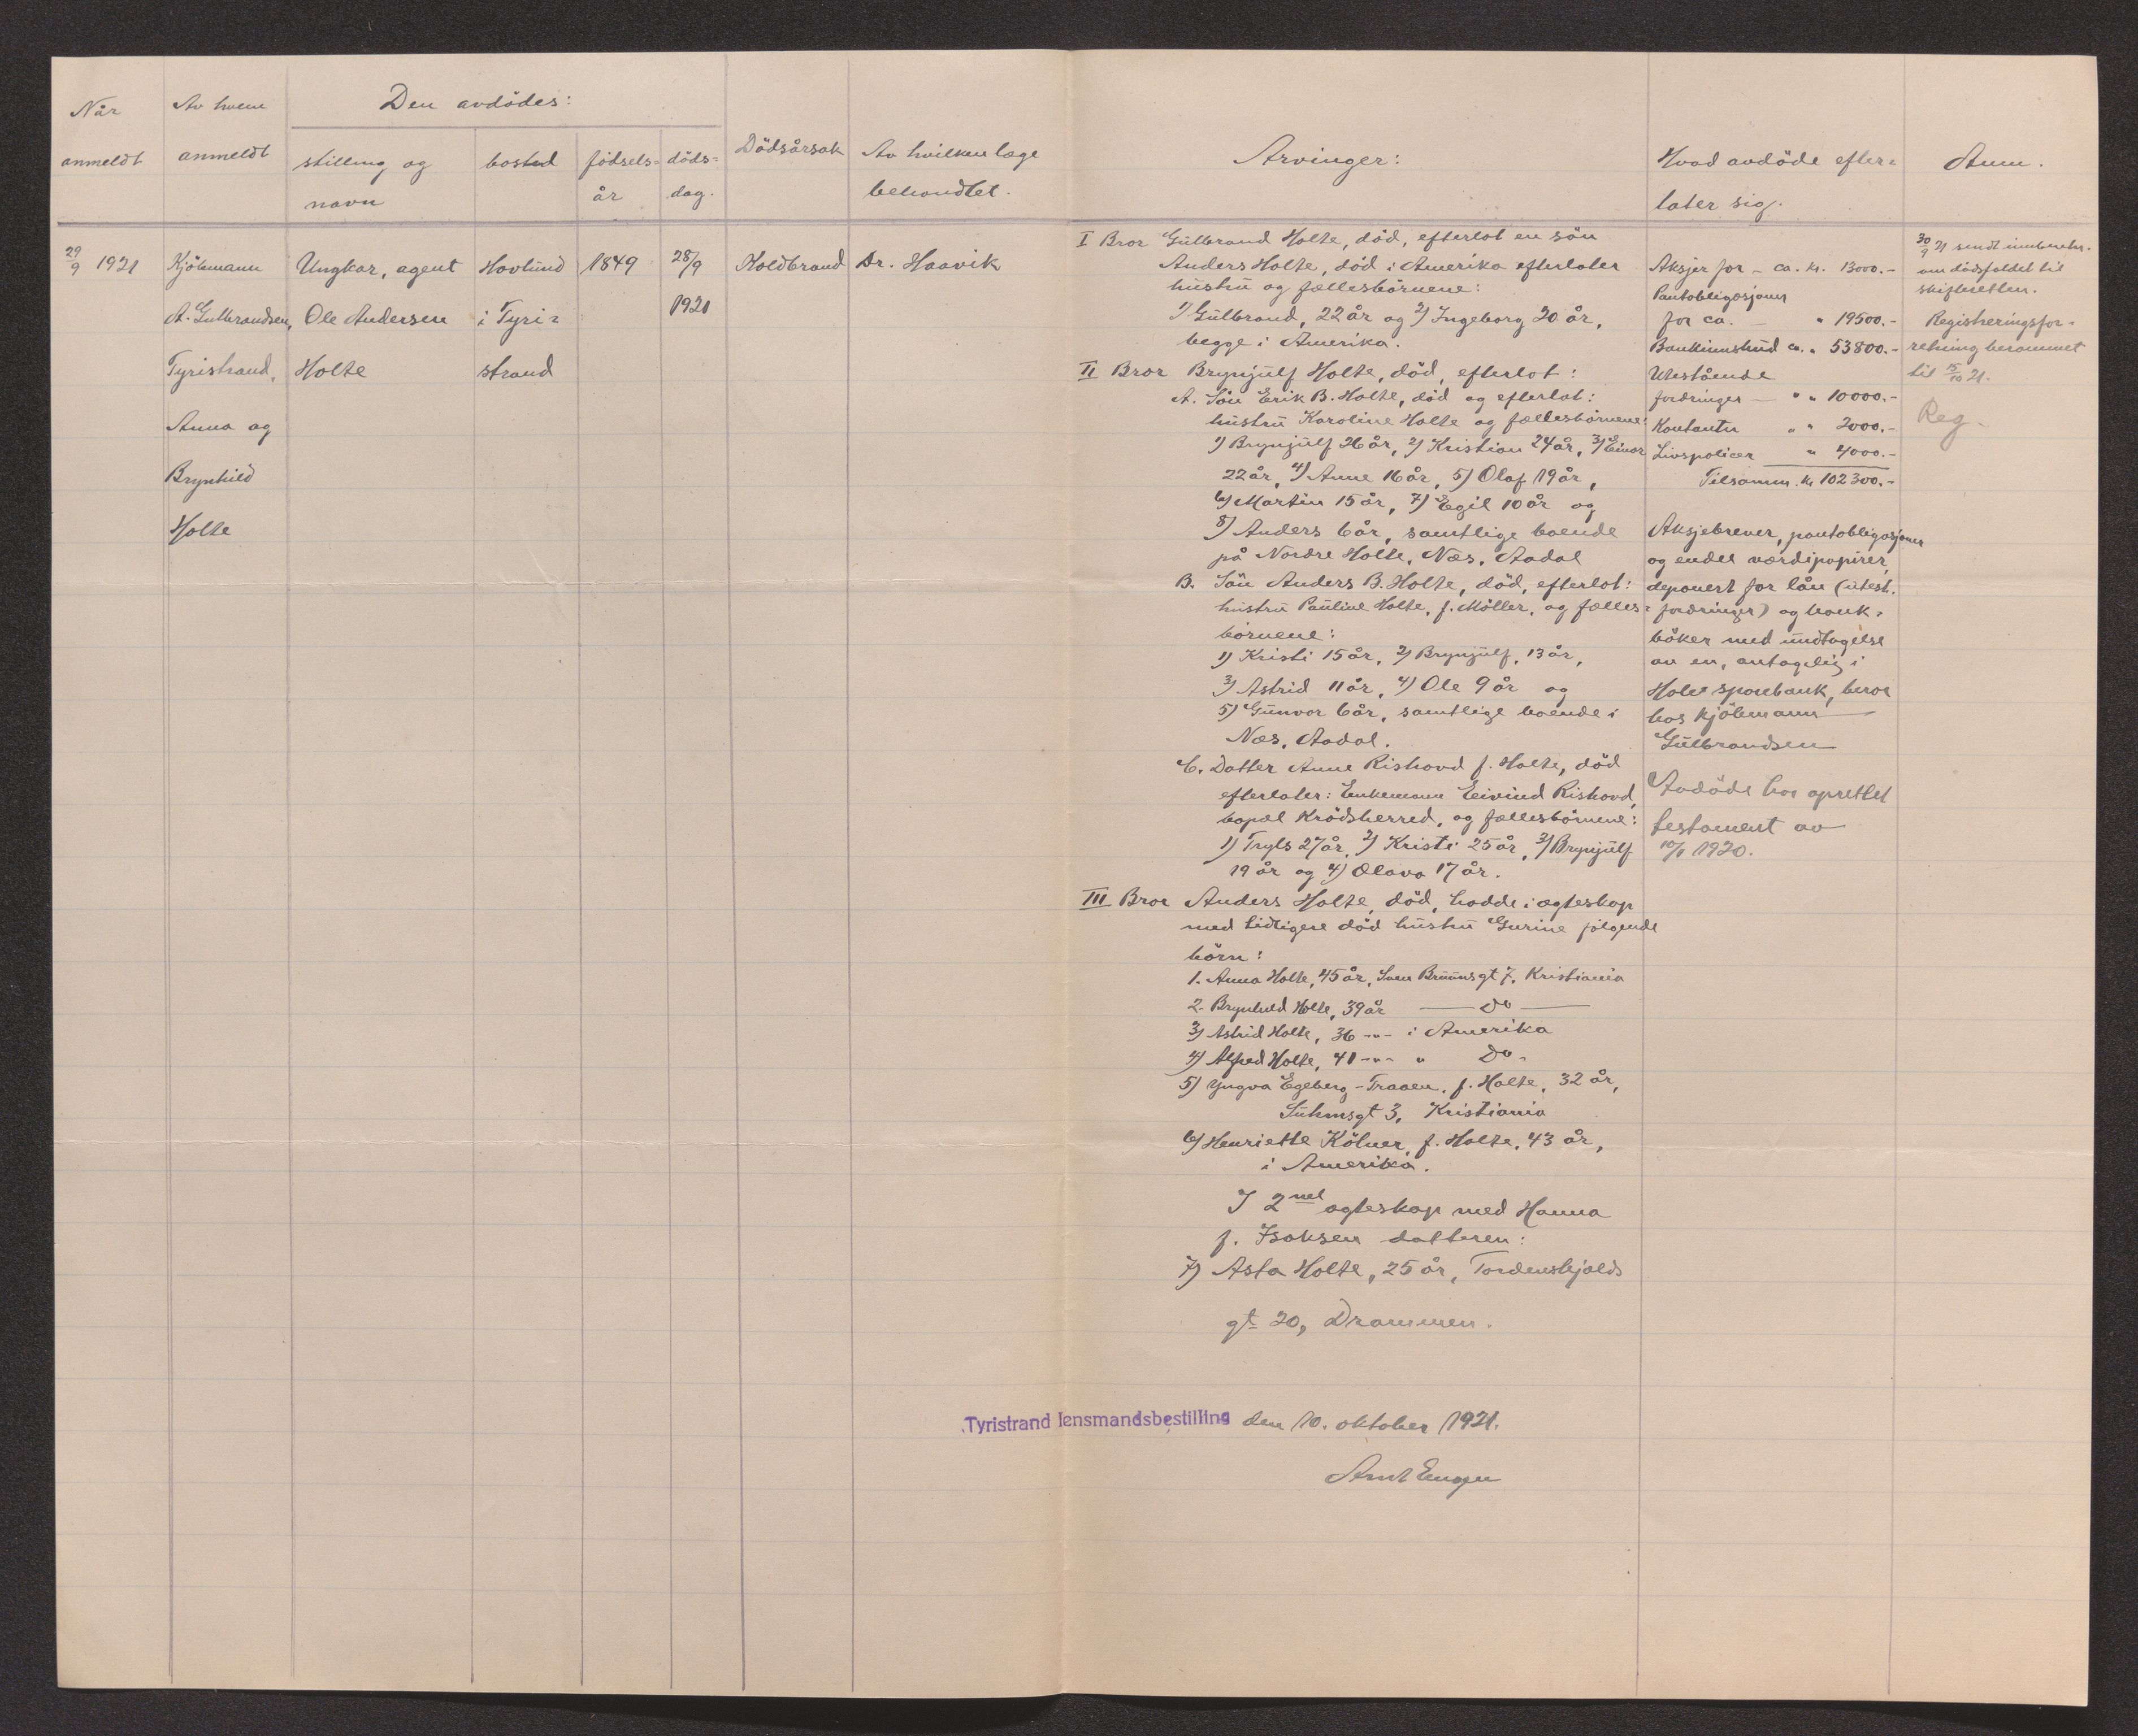 Når
anmeldt
Av hvem
anmeldt
Den avdödes:
stilling og
navn
bosted
födsels-
år
döds-
dag.
Dödsårsak
Av hvilken læge
behandlet.
Arvinger:
Hvad avdöde efter-
later sig.
Anm.
29/9 1921
Kjöbmann
A. Gulbrandsen,
Tyristrand,
Anna og
Brynhild
Holte
Ungkar, agent
Ole Andersen
Holte
Hovlund
i Tyri-
strand
1849
28/9
1921
Koldbrand
Dr. Haavik
I Bror Gulbrand Holte, död, efterlot en sön
Anders Holte, död i Amerika efterlater
hustru og fællesbörnene:
1) Gulbrand, 22 år og 2) Ingeborg 20 år,
begge i Amerika.
II Bror Brynjulf Holte, död, efterlot:
A. Sön Erik B. Holte, död og efterlot:
hustru Karoline Holte og fællesbörnene:
1) Brynjulf 26 år, 2) Kristian 24 år, 3) Einar
22 år, 4) Anne 16 år, 5) Olaf 19 år,
6) Martin 15 år, 7) Egil 10 år og
8) Anders 6 år, samtlige boende
på Nordre Holte, Næs, Aadal
B. Sön Anders B. Holte, död, efterlot:
hustru Pauline Holte, f. Möller, og fælles-
börnene:
1) Kristi 15 år, 2) Brynjulf, 13 år,
3) Astrid 11 år, 4) Ole 9 år og
5) Gunvor 6 år, samtlige boende i
Næs, Aadal.
C. Datter Anne Rishovd f. Holte, död
efterlater: Enkemann Eivind Rishovd,
bopæl Krödsherred, og fællesbörnene:
1) Tryls 27 år, 2) Kristi 25 år, 3) Brynjulf
19 år og 4) Olava 17 år.
III Bror Anders Holte, död, hadde i ægteskap
med tidligere död hustru Gurine fölgende
börn:
1. Anna Holte, 45 år, Sven Bruunsgt 7, Kristiania
2. Brynhild Holte, 39 år — do —
3) Astrid Holte, 36 -"- i Amerika
4) Alfred Holte, 41 -"- " Do -
5) Yngva Egeberg-Traaen, f. Holte, 32 år,
Suhmsgt 3, Kristiania
6) Henriette Kölner, f. Holte, 43 år,
i Amerika.
I 2net ægteskap med Hanna
f. Isaksen datteren:
7) Asta Holte, 25 år, Tordenskjolds
gt 20, Drammen.
Aksjer for - ca. kr. 13000.-
Pantobligasjoner
for ca. — " 19500.-
Bankinnskud ca. " 53800.-
Utestående
fordringer — " " 10000.-
Kontanter " " 2000.-
Livspolicer " 4000.-
Tilsamm. kr 102300.-
Aksjebrever, pantobligasjoner
og endel værdipapirer,
deponert for lån (utest.
fordringer) og bank-
böker med undtagelse
av en, antagelig i
Hole sparebank, beror
hos kjöbmann
Gulbrandsen
Avdöde har oprettet
testament av
1920.
30/9 21 sendt innberetn.
om dödsfaldet til
skifteretten.
Registreringsfor-
retning berammet
til 15/10 21.
Reg.
Tyristrand lensmandsbestilling den 10. oktober 1921.